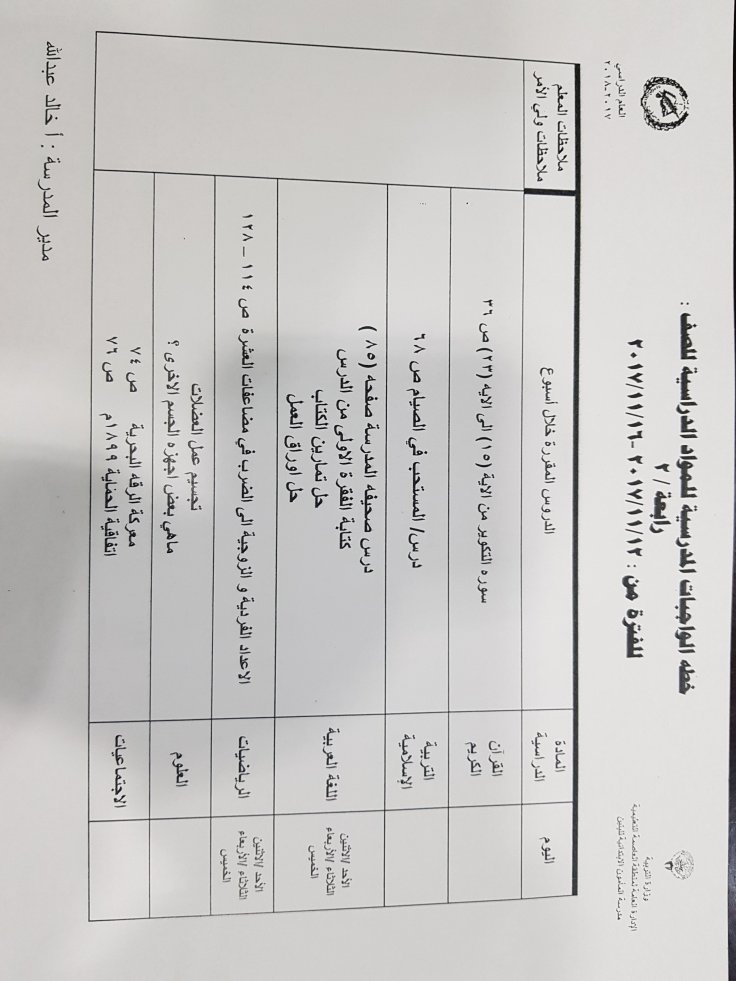 وزارة التربية
الإدارة العامة لمنطقة العاصمة التعليمية
مدرسة المأمون الابتدائية للبنين
العام الدراسي
٢٠١٧-٢٠١٨
خطه الواجبات المدرسية للمواد الدراسية للصف :
رابعة / ٢
للفترة من : ٢٠١٧/١١/١٢ -٢٠١٧/١١/١٦
اليوم
المادة
الدراسية
الدروس المقررة خلال أسبوع
ملاحظات المعلم
ملاحظات ولي الأمر
القرآن
الكريم
سوره التكوير من الاية (١٥) الى الايه (٢٣) ص ٣٦
التربية
الإسلامية
درس/ المستحب في الصيام ص ٦٨
الأحد /الاثنين
الثلاثاء /الأربعاء
الخميس
اللغة العربية
درس صحيفه المدرسة صفحه (٨٥)
كتابة الفقرة الاولى من الدرس
حل تمارين الكتاب
حل اوراق العمل
الأحد /الاثنين
الثلاثاء /الأربعاء
الخميس
الرياضيات
الاعداد الفردية و الزوجية الى الضرب في مضاعفات العشرة ص ١١٤ – ١٢٨
العلوم
تجسيم عمل العضلات
ماهي بعض اجهزه الجسم الاخرى ؟
الاجتماعيات
معركة الرقه البحرية ص ٧٤
اتفاقية الحماية ١٨٩٩م ص ٧٦
مدير المدرسة : أ خالد عبدالله